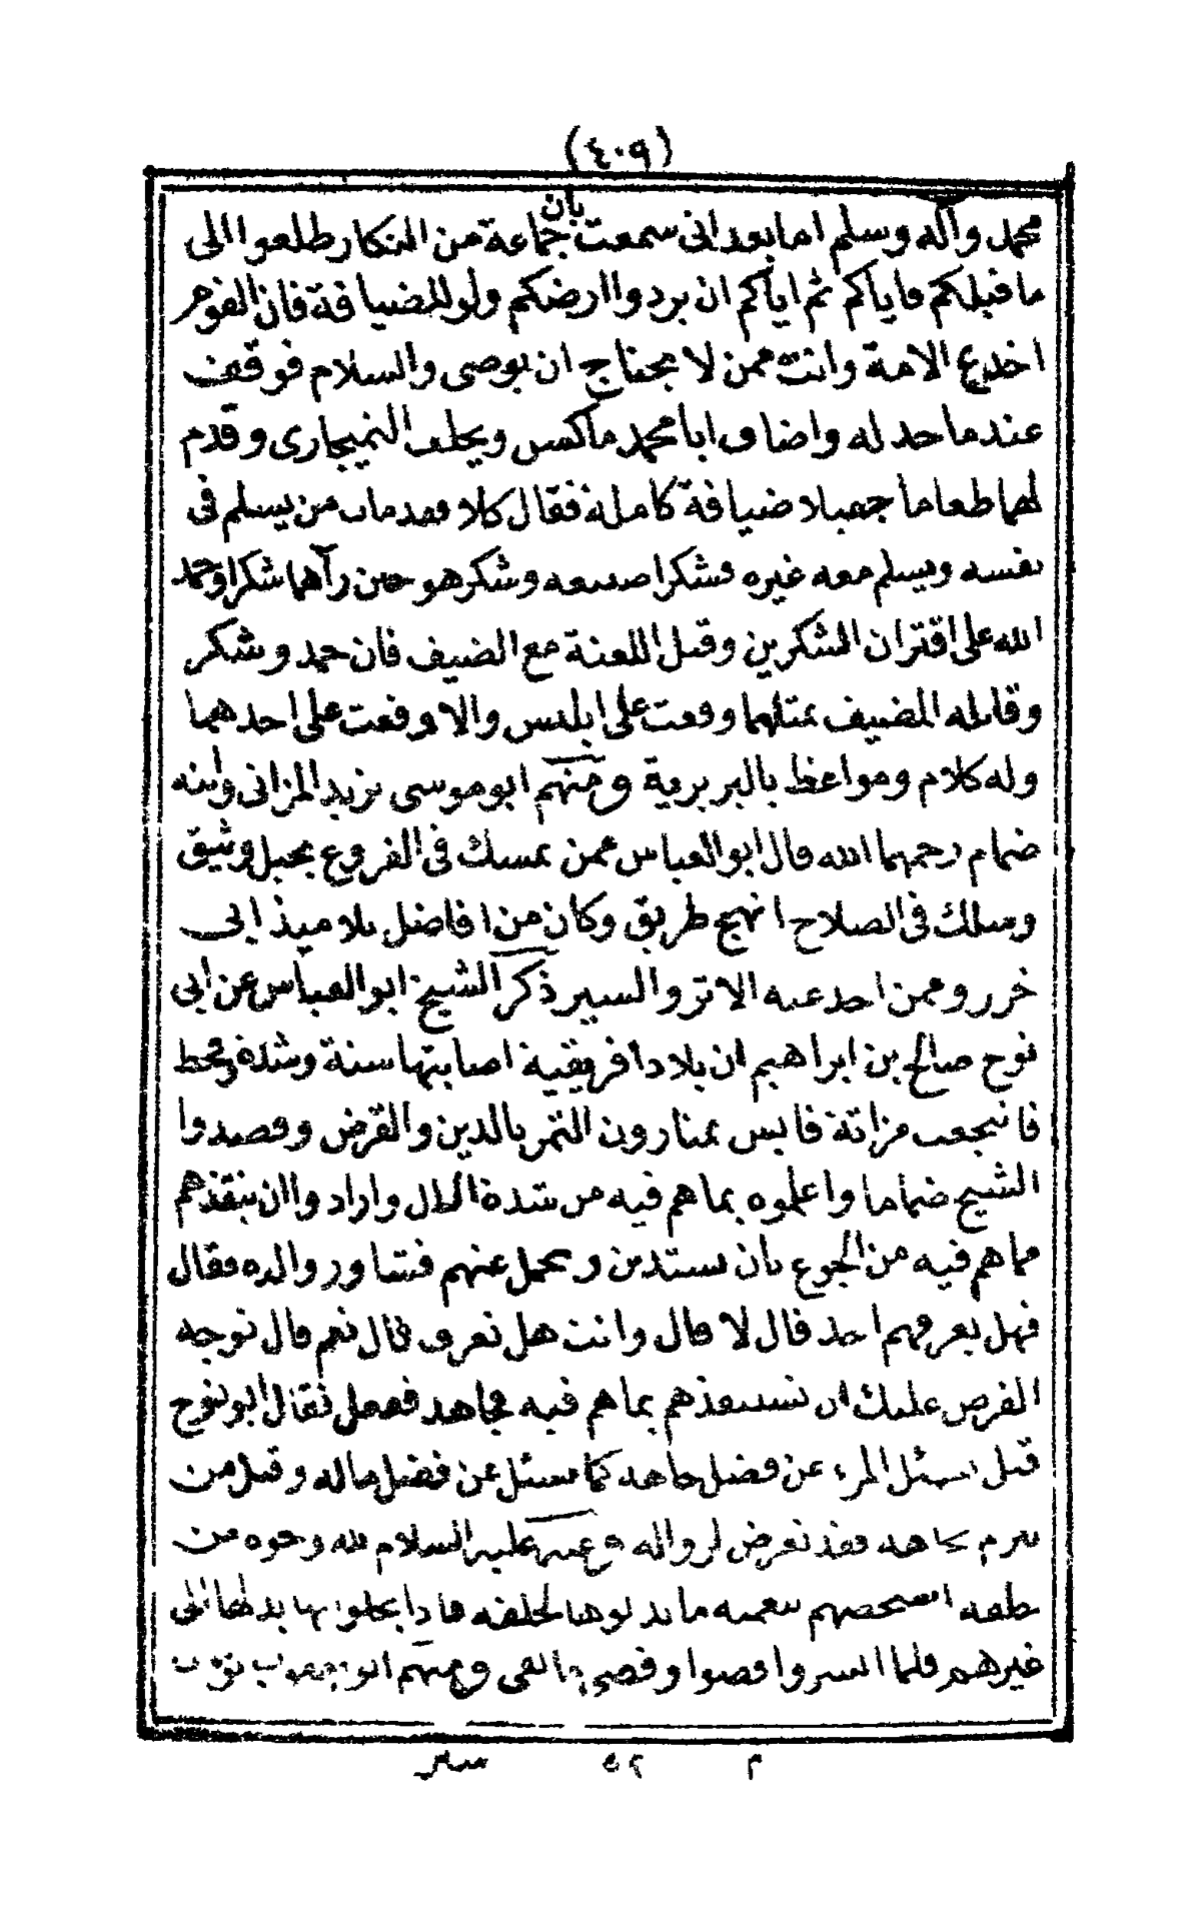 (٤٠٩)
محمد وآله وسلم اما بعد انى سمعت بان جماعة من النكار طلعوا الى
ما قبلكم فاياكم ثم اياكم ان يردوا ارضكم ولو للضيافة فان القوم
اخدع الامة وانت ممن لا يحتاج ان يوصى والسلام فوقف
عند ما حد له واضاف ابا محمد ماكسن ويخلف التميجارى وقدم
لهما طعاما جميلا ضيافة كاملة فقال كلا فقد مات من يسلم فى
نفسه ويسلم معه غيره فشكرا صنيعه وشكر هو حين رآهما شكرا وحمد
الله على اقتران الشكرين وقيل اللعنة مع الضيف فان حمد وشكر
وقابله المضيف بمثلهما وقعت على ابليس والا وقعت على احدهما
وله كلام ومواعظ بالبربرية ومنهم ابو موسى يزيد المزاتى وابنه
ضمام رحمهما الله قال ابو العباس ممن تمسك فى الفروع بحبل وثيق
وسلك فى الصلاح انهج طريق وكان من افاضل تلاميذ ابى
خزر وممن اخذ عنه الاثر والسير ذكر الشيخ ابو العباس عن ابى
نوح صالح بن ابراهيم ان بلاد افريقية اصابتها سنة وشدة وقحط
فانتجعت مزاتة قابس يمتارون التمر بالدين والقرض وقصدوا
الشيخ ضماما واعلموه بما هم فيه من شدة الحال وارادوا ان ينقذهم
مما هم فيه من الجوع بان يستدين ويحمل عنهم فشاور والده فقال
فهل يعرفهم احد قال لا قال وانت هل تعرف قال نعم قال توجه
الفرض عليك ان تستنقذهم بما هم فيه بجاهد ففعل فقال ابو نوح
قيل يسئل المرء عن فضل جاهه كما يسئل عن فضل ماله وقيل من
حرم بجاهه فقد تعرض لزواله وعنه عليه السلام لله وجوه من
خلقه اختصهم بنعمه ما بذلوها لخلقه فاذا بخلوا بها بدلها الى
غيرهم فلما ايسروا قضوا وقضى الباقى ومنهم ابو يعقوب
م ٥٢ سير